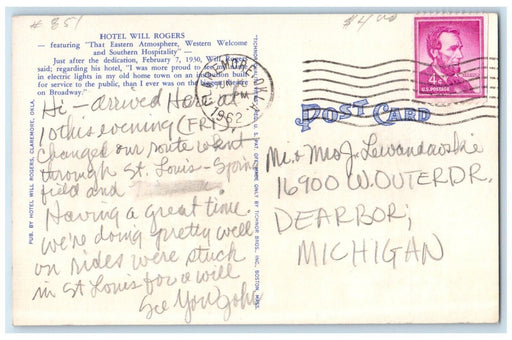 # 851
$4.00
HOTEL WILL ROGERS
— featuring "That Eastern Atmosphere, Western Welcome
and Southern Hospitality" —
Just after the dedication, February 7, 1930, Will Rogers
said; regarding his hotel, "I was more proud to see my name
in electric lights in my old home town on an institution built
for service to the public, than I ever was on the biggest theatre
on Broadway."
Hi - arrived Here at
10 this evening (FRI),
changed our route went
through St. Louis - Spring
field and
Having a great time.
we're doing pretty well
on rides were stuck
in St Louis for a will
See You John
PUB. BY HOTEL WILL ROGERS, CLAREMORE, OKLA.
1962
PM
POST CARD
4¢
U.S. POSTAGE
Mr. & Mrs J. Lewandowski
16900 W. OUTER DR.
DEARBOR;
MICHIGAN